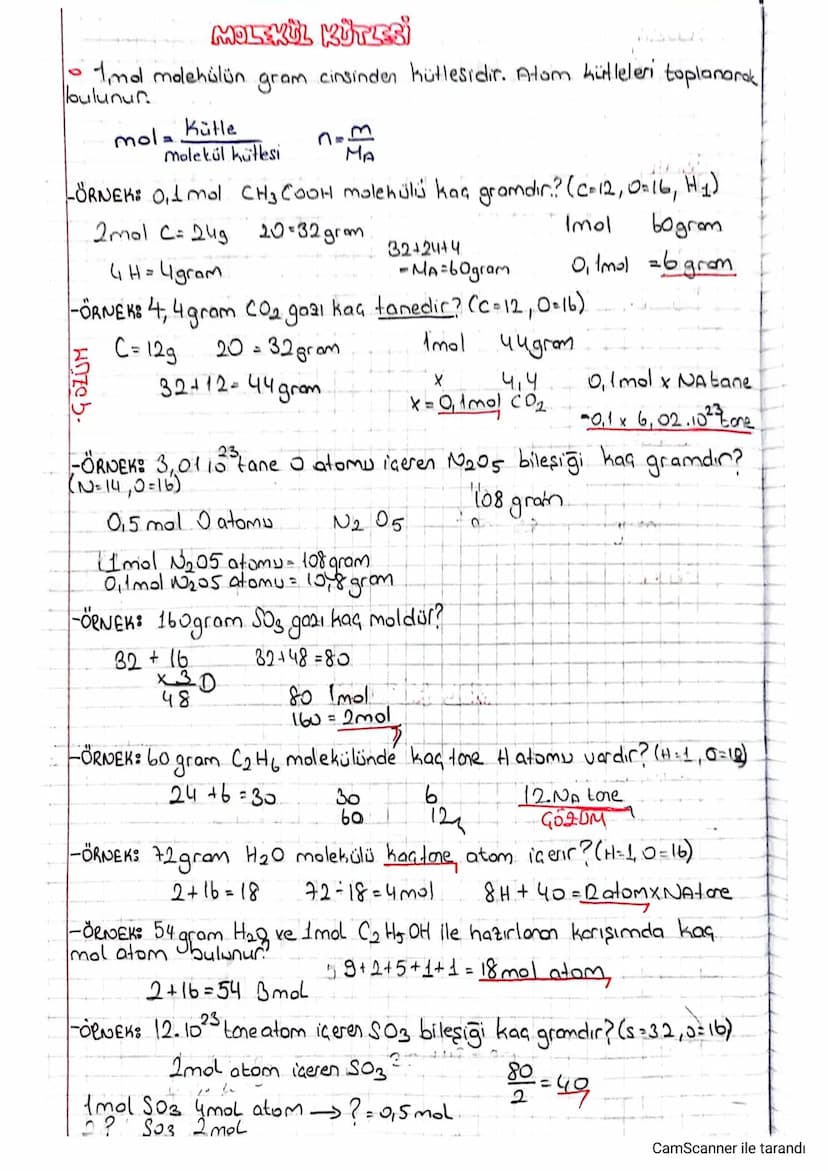 MOLEKÜL KÜTLESİ
1 mol molekülün gram cinsinden kütlesidir. Atom kütleleri toplanarak
bulunur.
mol = Kütle / molekül kütlesi n = m / MA
-ÖRNEK: 0,1 mol CH3COOH molekülü kaç gramdır? (C=12, O=16, H=1)
2mol C = 24g 2O=32gram 1mol 60gram
4H = 4gram 32+24+4 = MA=60gram 0,1mol = 6 gram
-ÖRNEK: 4,4gram CO2 gazı kaç tanedir? (C=12, O=16)
ÇÖZÜM
C=12g 2O = 32gram 1mol 44gram
32+12=44gram x 4,4 0,1mol x NA tane
x = 0,1mol CO2 =0,1 x 6,02.10^23 tane
-ÖRNEK: 3,01 10^23 tane O atomu içeren N2O5 bileşiği kaç gramdır?
(N=14, O=16)
108 gram
0,5 mol O atomu N2O5
1mol N2O5 atomu = 108gram
0,1mol N2O5 atomu = 10,8gram
-ÖRNEK: 160gram SO3 gazı kaç moldür?
32 + 16 32+48=80
x 3 O
48 80 1mol
160 = 2mol
-ÖRNEK: 60 gram C2H6 molekülünde kaç tane H atomu vardır? (H=1, C=12)
24+6=30 30 6 12.NA tane
60 12 ÇÖZÜM
-ÖRNEK: 72gram H2O molekülü kaç tane atom içerir? (H=1, O=16)
2+16=18 72÷18=4mol 8H + 4O = 12 atomxNA tane
-ÖRNEK: 54gram H2O ve 1mol C2H5OH ile hazırlanan karışımda kaç
mol atom bulunur?
9+2+5+1+1 = 18mol atom
2+16=54 3mol
-ÖRNEK: 12.10^23 tane atom içeren SO3 bileşiği kaç gramdır? (S=32, O=16)
2mol atom içeren SO3 ? 80/2 = 40
1mol SO3 4mol atom → ? = 0,5 mol
? SO3 2mol
CamScanner ile tarandı